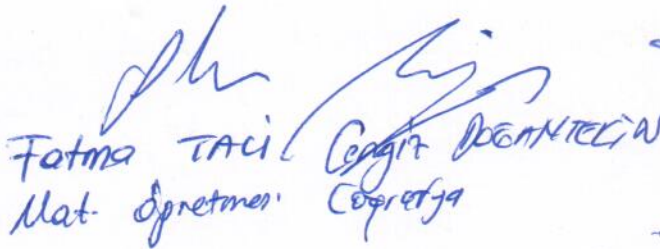 Fatma TACİ Cengiz DOĞANTEKİN
Mat. öğretmeni Coğrafya